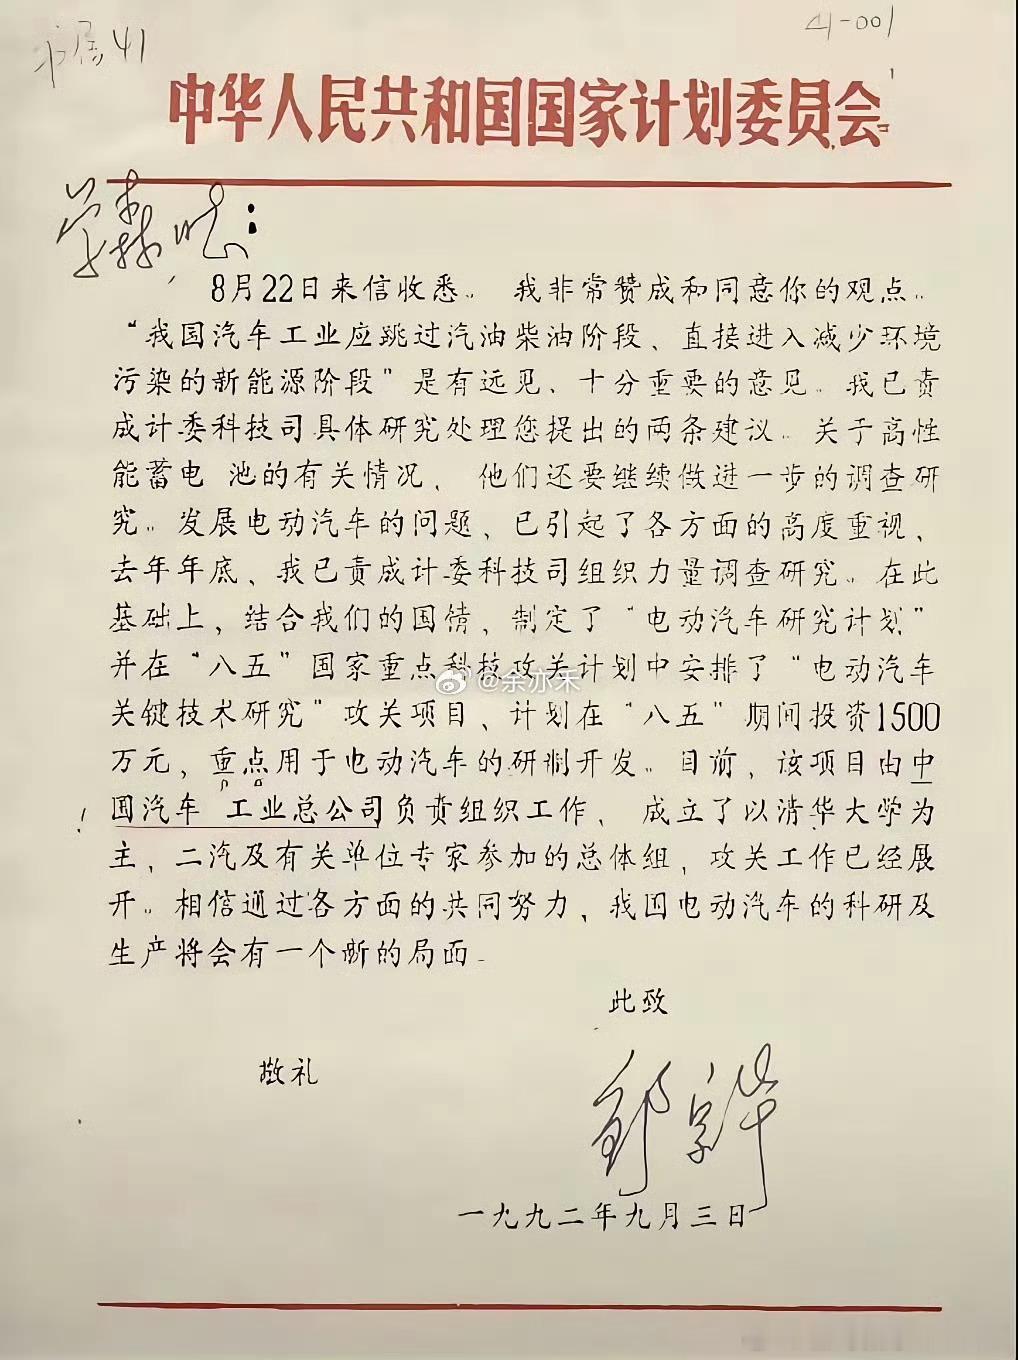 41-001
中华人民共和国国家计划委员会
学森同志：
8月22日来信收悉。我非常赞成和同意你的观点。
“我国汽车工业应跳过汽油柴油阶段、直接进入减少环境
污染的新能源阶段”是有远见、十分重要的意见。我已责
成计委科技司具体研究处理您提出的两条建议。关于高性
能蓄电 池的有关情况，他们还要继续做进一步的调查研
究。发展电动汽车的问题、已引起了各方面的高度重视、
去年年底、我已责成计委科技司组织力量调查研究。在此
基础上，结合我们的国情，制定了“电动汽车研究计划”
并在“八五”国家重点科技攻关计划中安排了“电动汽车
关键技术研究”攻关项目、计划在“八五”期间投资1500
万元，重点用于电动汽车的研制开发。目前，该项目由中
国汽车 工业总公司负责组织工作、成立了以清华大学为
主，二汽及有关单位专家参加的总体组，攻关工作已经展
开。相信通过各方面的共同努力、我国电动汽车的科研及
生产将会有一个新的局面。
此致
敬礼
邹家华
一九九二年九月三日
@余亦禾